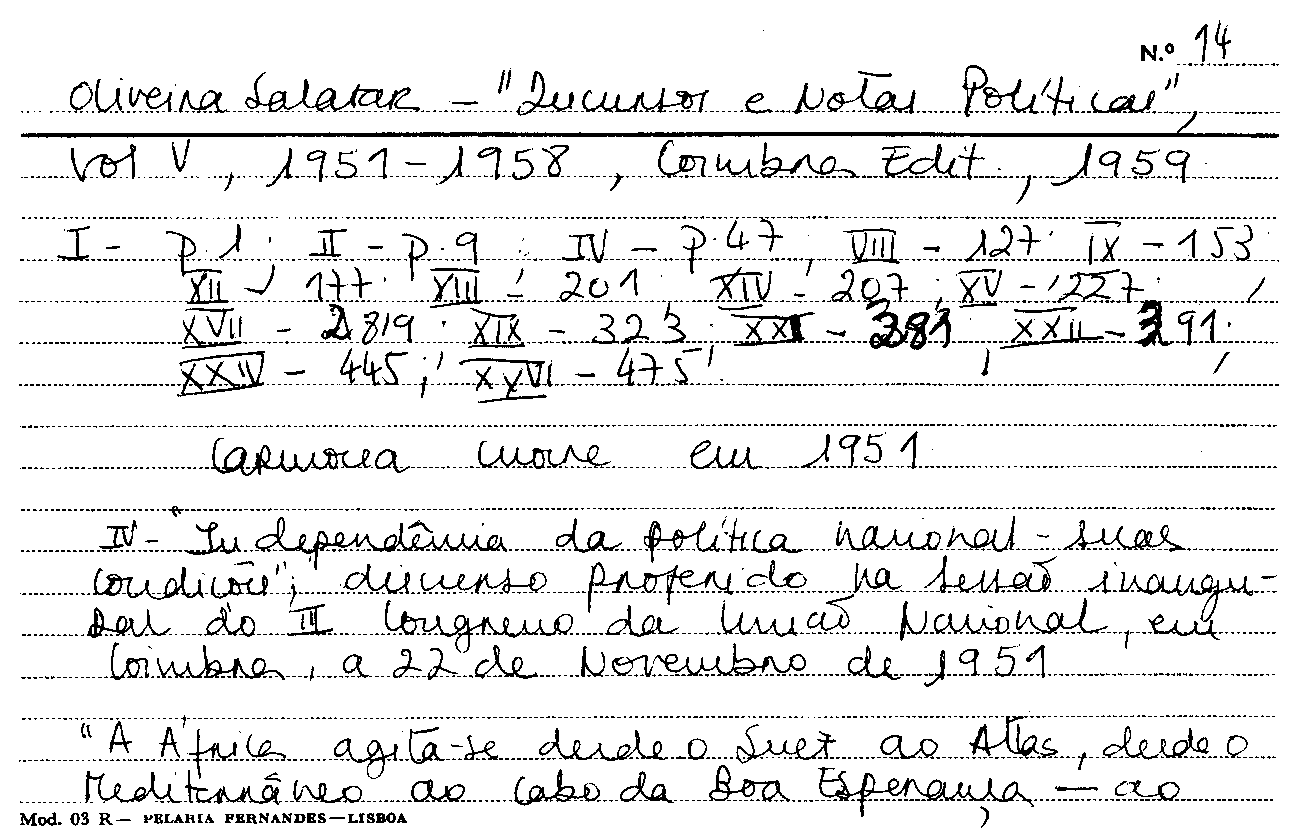 N.º 14
Oliveira Salazar - "Discursos e Notas Políticas",
Vol V, 1951-1958, Coimbra Edit., 1959
I - p.1; II - p.9; IV - p.47; VIII - 127; IX - 153
XII - 177; XIII - 201; XIV - 207; XV - 227;
XVII - 2819; XIX - 323; XXI - 381; XXII - 391;
XXIV - 445; XXVI - 475.
Carmona morre em 1951
IV - "Independência da política nacional - suas
condições"; discurso proferido na sessão inaugu-
ral do III Congresso da União Nacional, em
Coimbra, a 22 de Novembro de 1951
"A África agita-se desde o Suez ao Atlas, desde o
Mediterrâneo ao Cabo da Boa Esperança — ao
Mod. 03 R — PELARIA FERNANDES — LISBOA